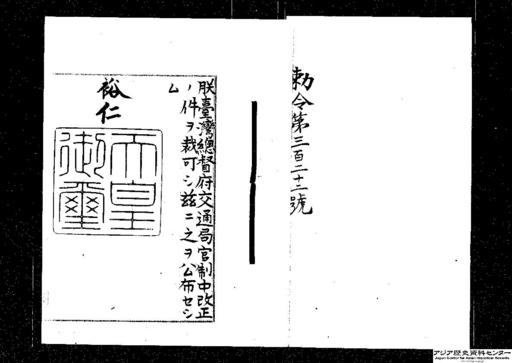 勅令第三百二十二號
朕臺灣總督府交通局官制中改正
ノ件ヲ裁可シ茲ニ之ヲ公布セシ
ム
裕仁
天皇
御璽
アジア歴史資料センター
Japan Center for Asian Historical Records